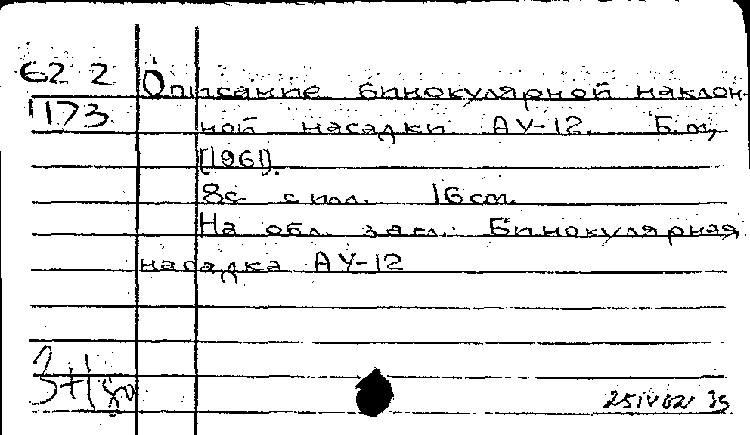 62 2
173
Описание бинокулярной наклон-
ной насадки АУ-12. Б.м,
[1961].
8с с илл. 16 см.
На обл. загл.: Бинокулярная
насадка АУ-12